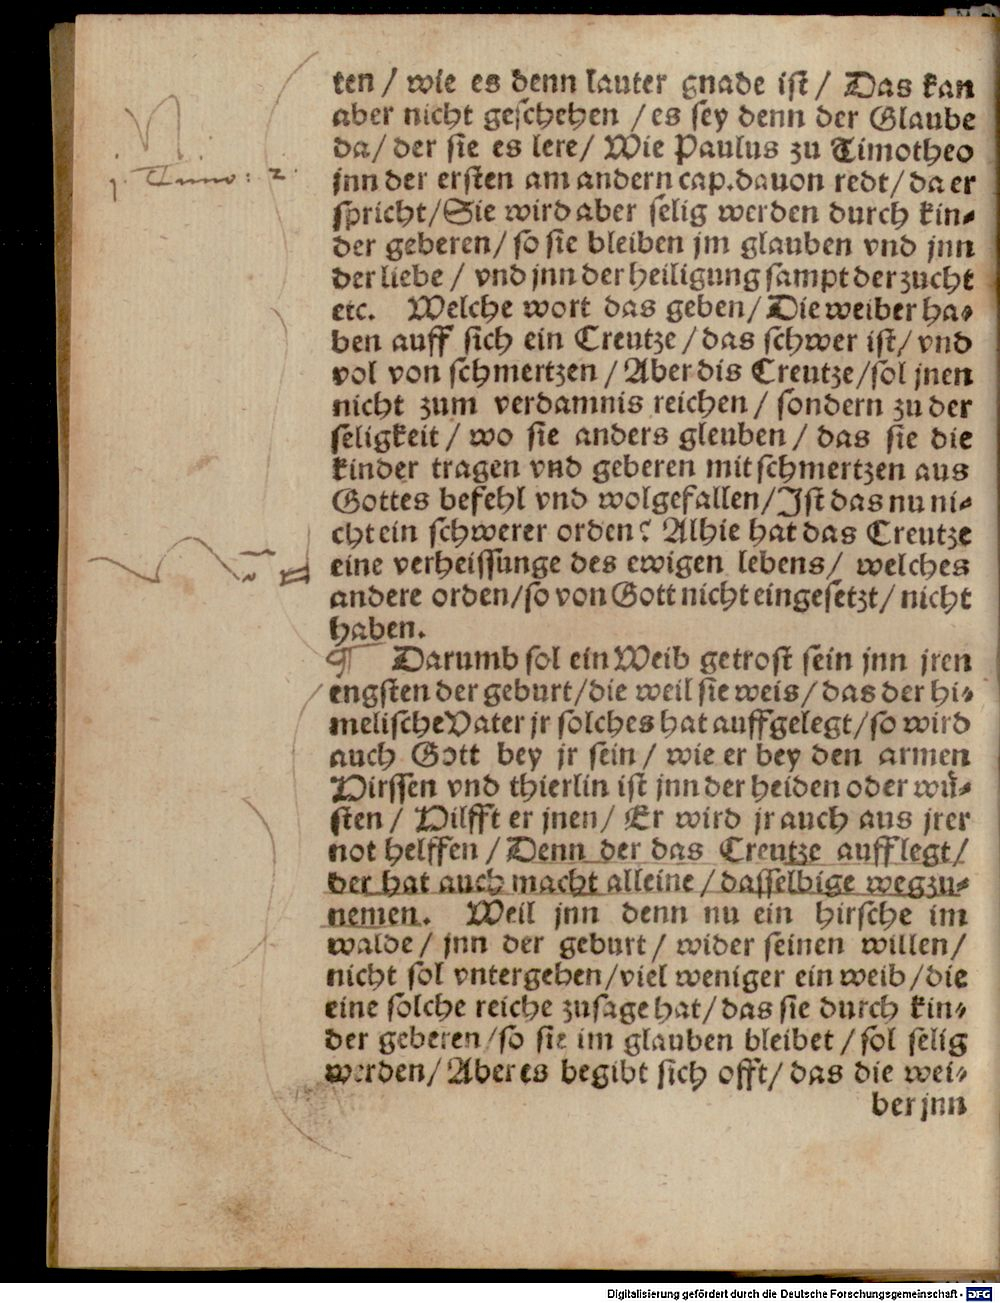 ten / wie es denn lauter gnade ist / Das kan
aber nicht geschehen / es sey denn der Glaube
da / der sie es lere / Wie Paulus zu Timotheo
j. Timo: 2.
jnn der ersten am andern cap. dauon redt / da er
spricht / Sie wird aber selig werden durch kin⸗
der geberen / so sie bleiben jm glauben vnd jnn
der liebe / vnd jnn der heiligung sampt der zucht
etc. Welche wort das geben / Die weiber ha⸗
ben auff sich ein Creutze / das schwer ist / vnd
vol von schmertzen / Aber dis Creutze / sol jnen
nicht zum verdamnis reichen / sondern zu der
seligkeit / wo sie anders gleuben / das sie die
kinder tragen vnd geberen mit schmertzen aus
Gottes befehl vnd wolgefallen / Jst das nu ni⸗
cht ein schwerer orden? Alhie hat das Creutze
eine verheissunge des ewigen lebens / welches
andere orden / so von Gott nicht eingesetzt / nicht
haben.
¶ Darumb sol ein Weib getrost sein jnn jren
engsten der geburt / die weil sie weis / das der hi⸗
melische Vater jr solches hat auffgelegt / so wird
auch Gott bey jr sein / wie er bey den armen
Hirssen vnd thierlin ist jnn der heiden oder wü⸗
sten / Hilfft er jnen / Er wird jr auch aus jrer
not helffen / Denn der das Creutze aufflegt /
der hat auch macht alleine / dasselbige wegzu⸗
nemen. Weil jnn denn nu ein hirsche im
walde / jnn der geburt / wider seinen willen /
nicht sol vntergehen / viel weniger ein weib / die
eine solche reiche zusage hat / das sie durch kin⸗
der geberen / so sie im glauben bleibet / sol selig
werden / Aber es begibt sich offt / das die wei⸗
ber jnn
Digitalisierung gefördert durch die Deutsche Forschungsgemeinschaft - DFG